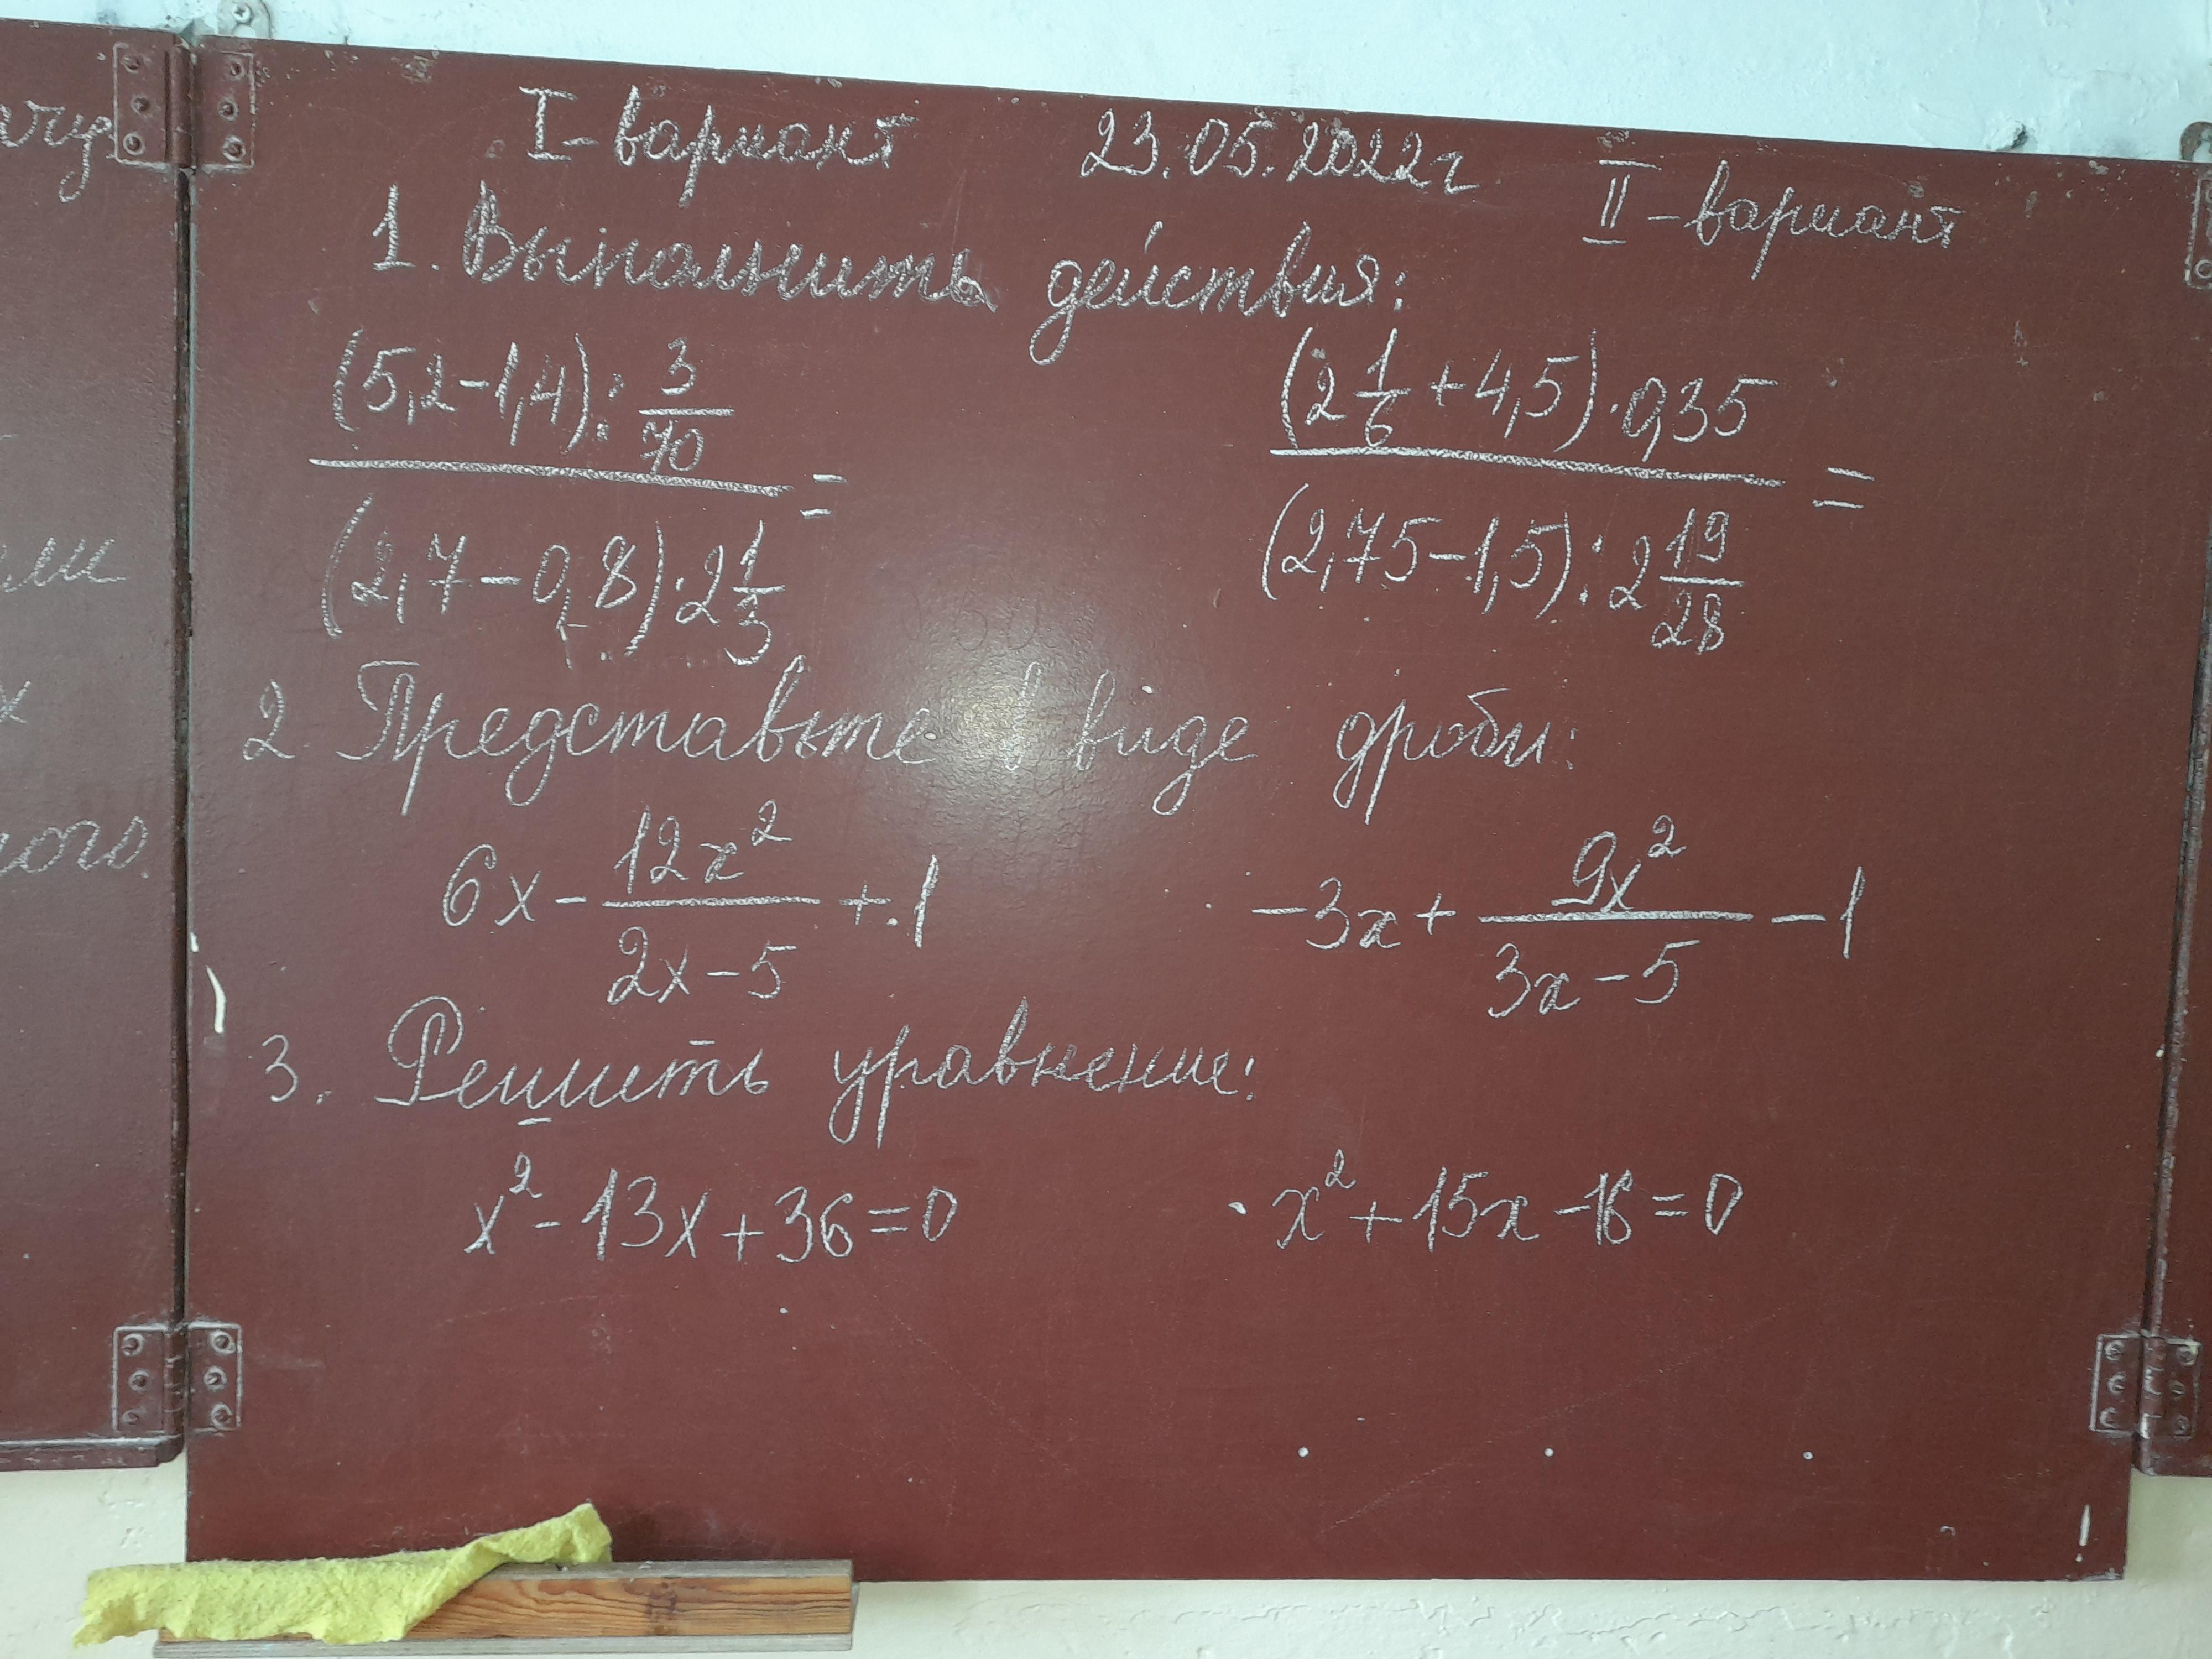 I-вариант 23.05.2022г II-вариант
1. Выполнить действия:
(5,2-1,4):3/70 = (2 1/6+4,5)·0,35 =
(2,7-0,8)·2 1/3 (2,75-1,5):2 19/28
2. Представьте в виде дроби:
6x - 12x²/2x-5 + 1 -3x + 9x²/3x-5 - 1
3. Решить уравнение:
x²-13x+36=0 x²+15x-16=0